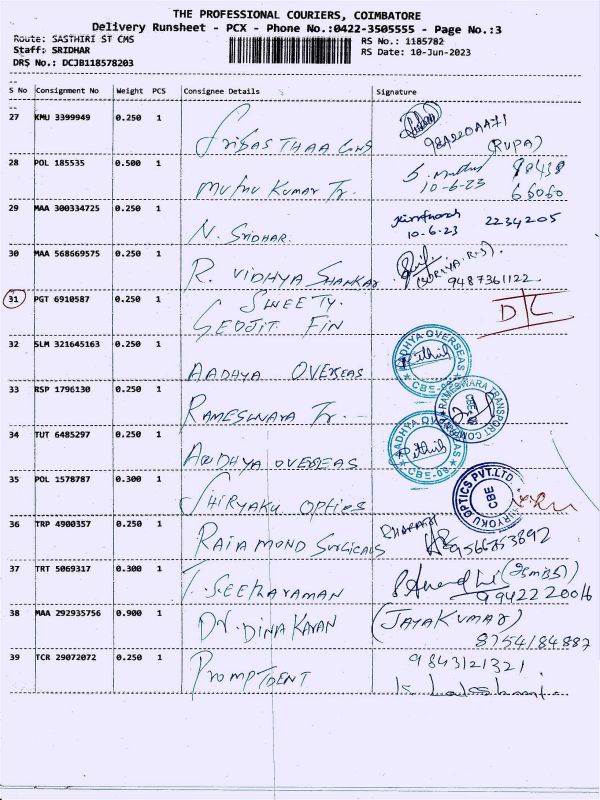 THE PROFESSIONAL COURIERS, COIMBATORE
Delivery Runsheet - PCX - Phone No.:0422-3505555 - Page No.:3
Route: SASTHIRI ST CMS
RS No.: 1185782
Staff: SRIDHAR
RS Date: 10-Jun-2023
DRS No.: DCJB118578203
S No Consignment No Weight PCS Consignee Details Signature
27 KMU 3399949 0.250 1
(RUPA)
28 POL 185535 0.500 1 Muthu Kumar Tr. S. Muthu 98438
10-6-23 66060
29 MAA 300334725 0.250 1 N. SRIDHAR. 2234205
10.6.23
30 MAA 568669575 0.250 1 R. VIDHYA SHANKAR (SURIYA.R.S)
9487361122
31 PGT 6910587 0.250 1 SWEETY.
GEOJIT FIN
32 SLM 321645163 0.250 1 AADHYA OVERSEAS
AADHYA OVERSEAS
33 RSP 1796130 0.250 1 RAMESWARA Tr.
RAMESWARA TRANSPORT
34 TUT 6485297 0.250 1 AADHYA OVERSEAS
AADHYA OVERSEAS
35 POL 1578787 0.300 1 SHIRYAKU OPTICS
OPTICS PVT.LTD
CBE
36 TRP 4900357 0.250 1 RAIAMOND SURGICALS
9566753892
37 TRT 5069317 0.300 1 T. SEETHARAMAN
9942220016
38 MAA 292935756 0.900 1 Dr. DINAKARAN (JAYAKUMAR)
8754184887
39 TCR 29072072 0.250 1 PROMPTDENT 9843121321